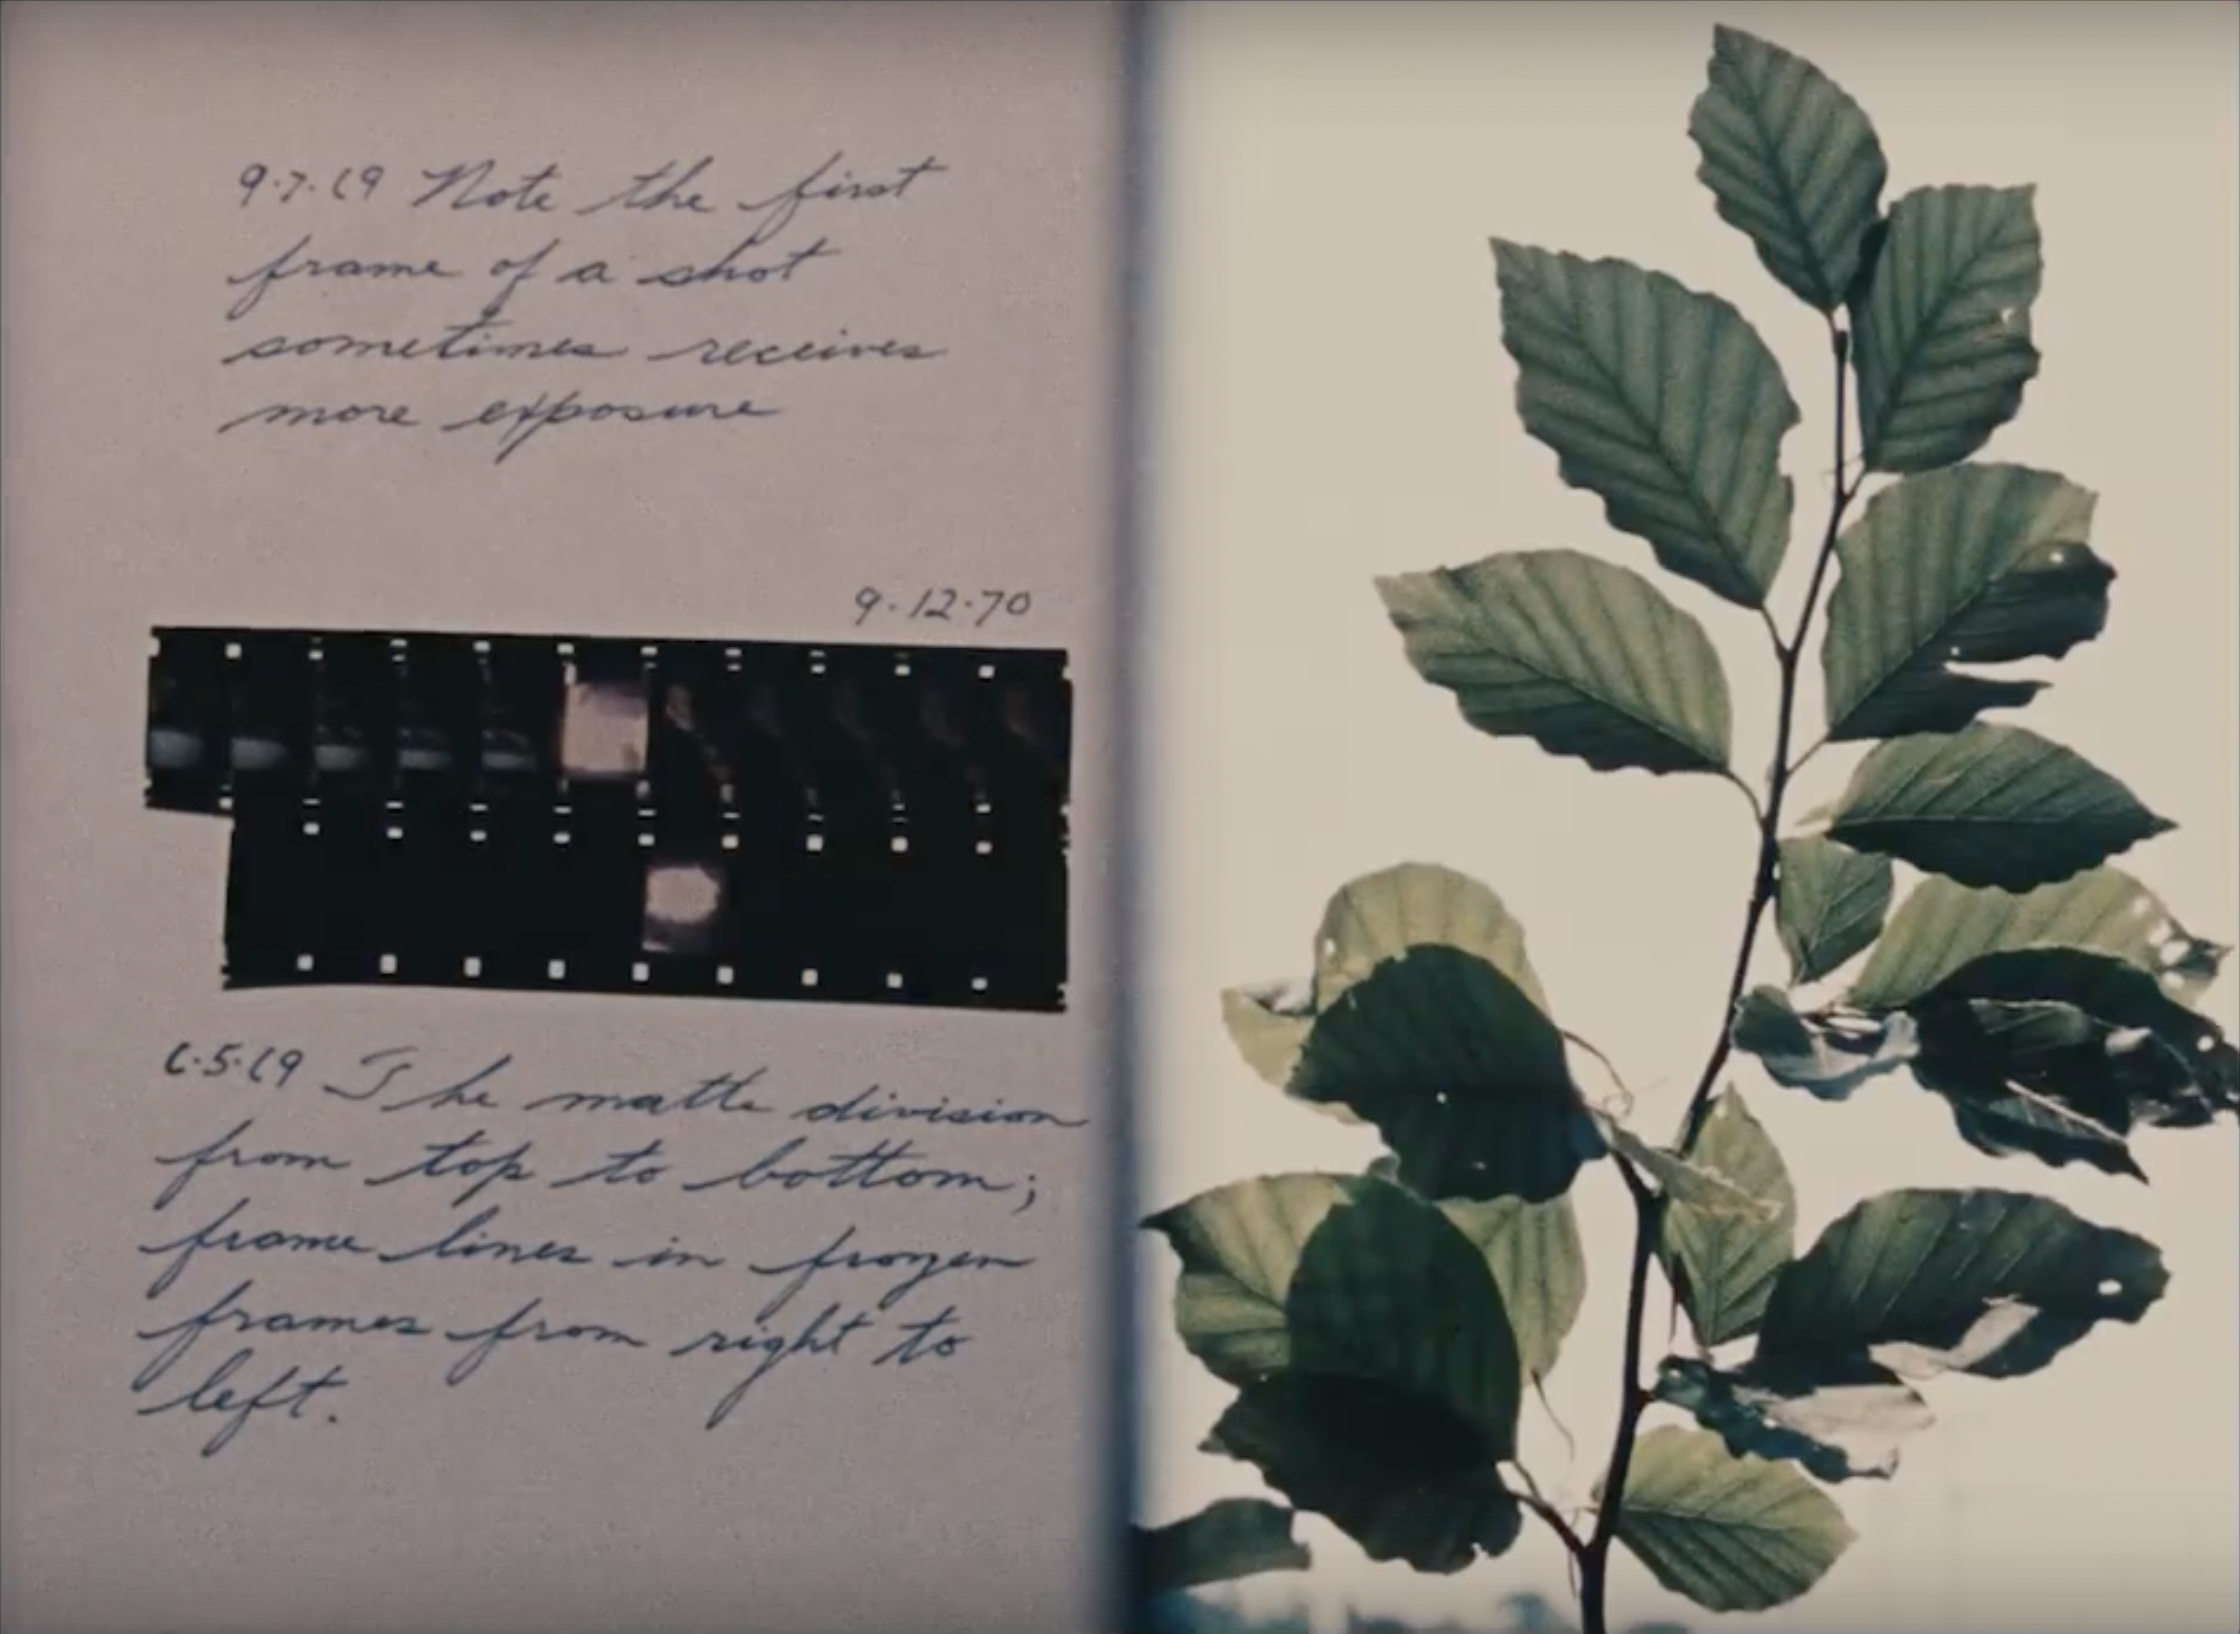 9·7·69 Note the first
frame of a shot
sometimes receives
more exposure
9·12·70
6·5·69 The matte division
from top to bottom;
frame lines in frozen
frames from right to
left.